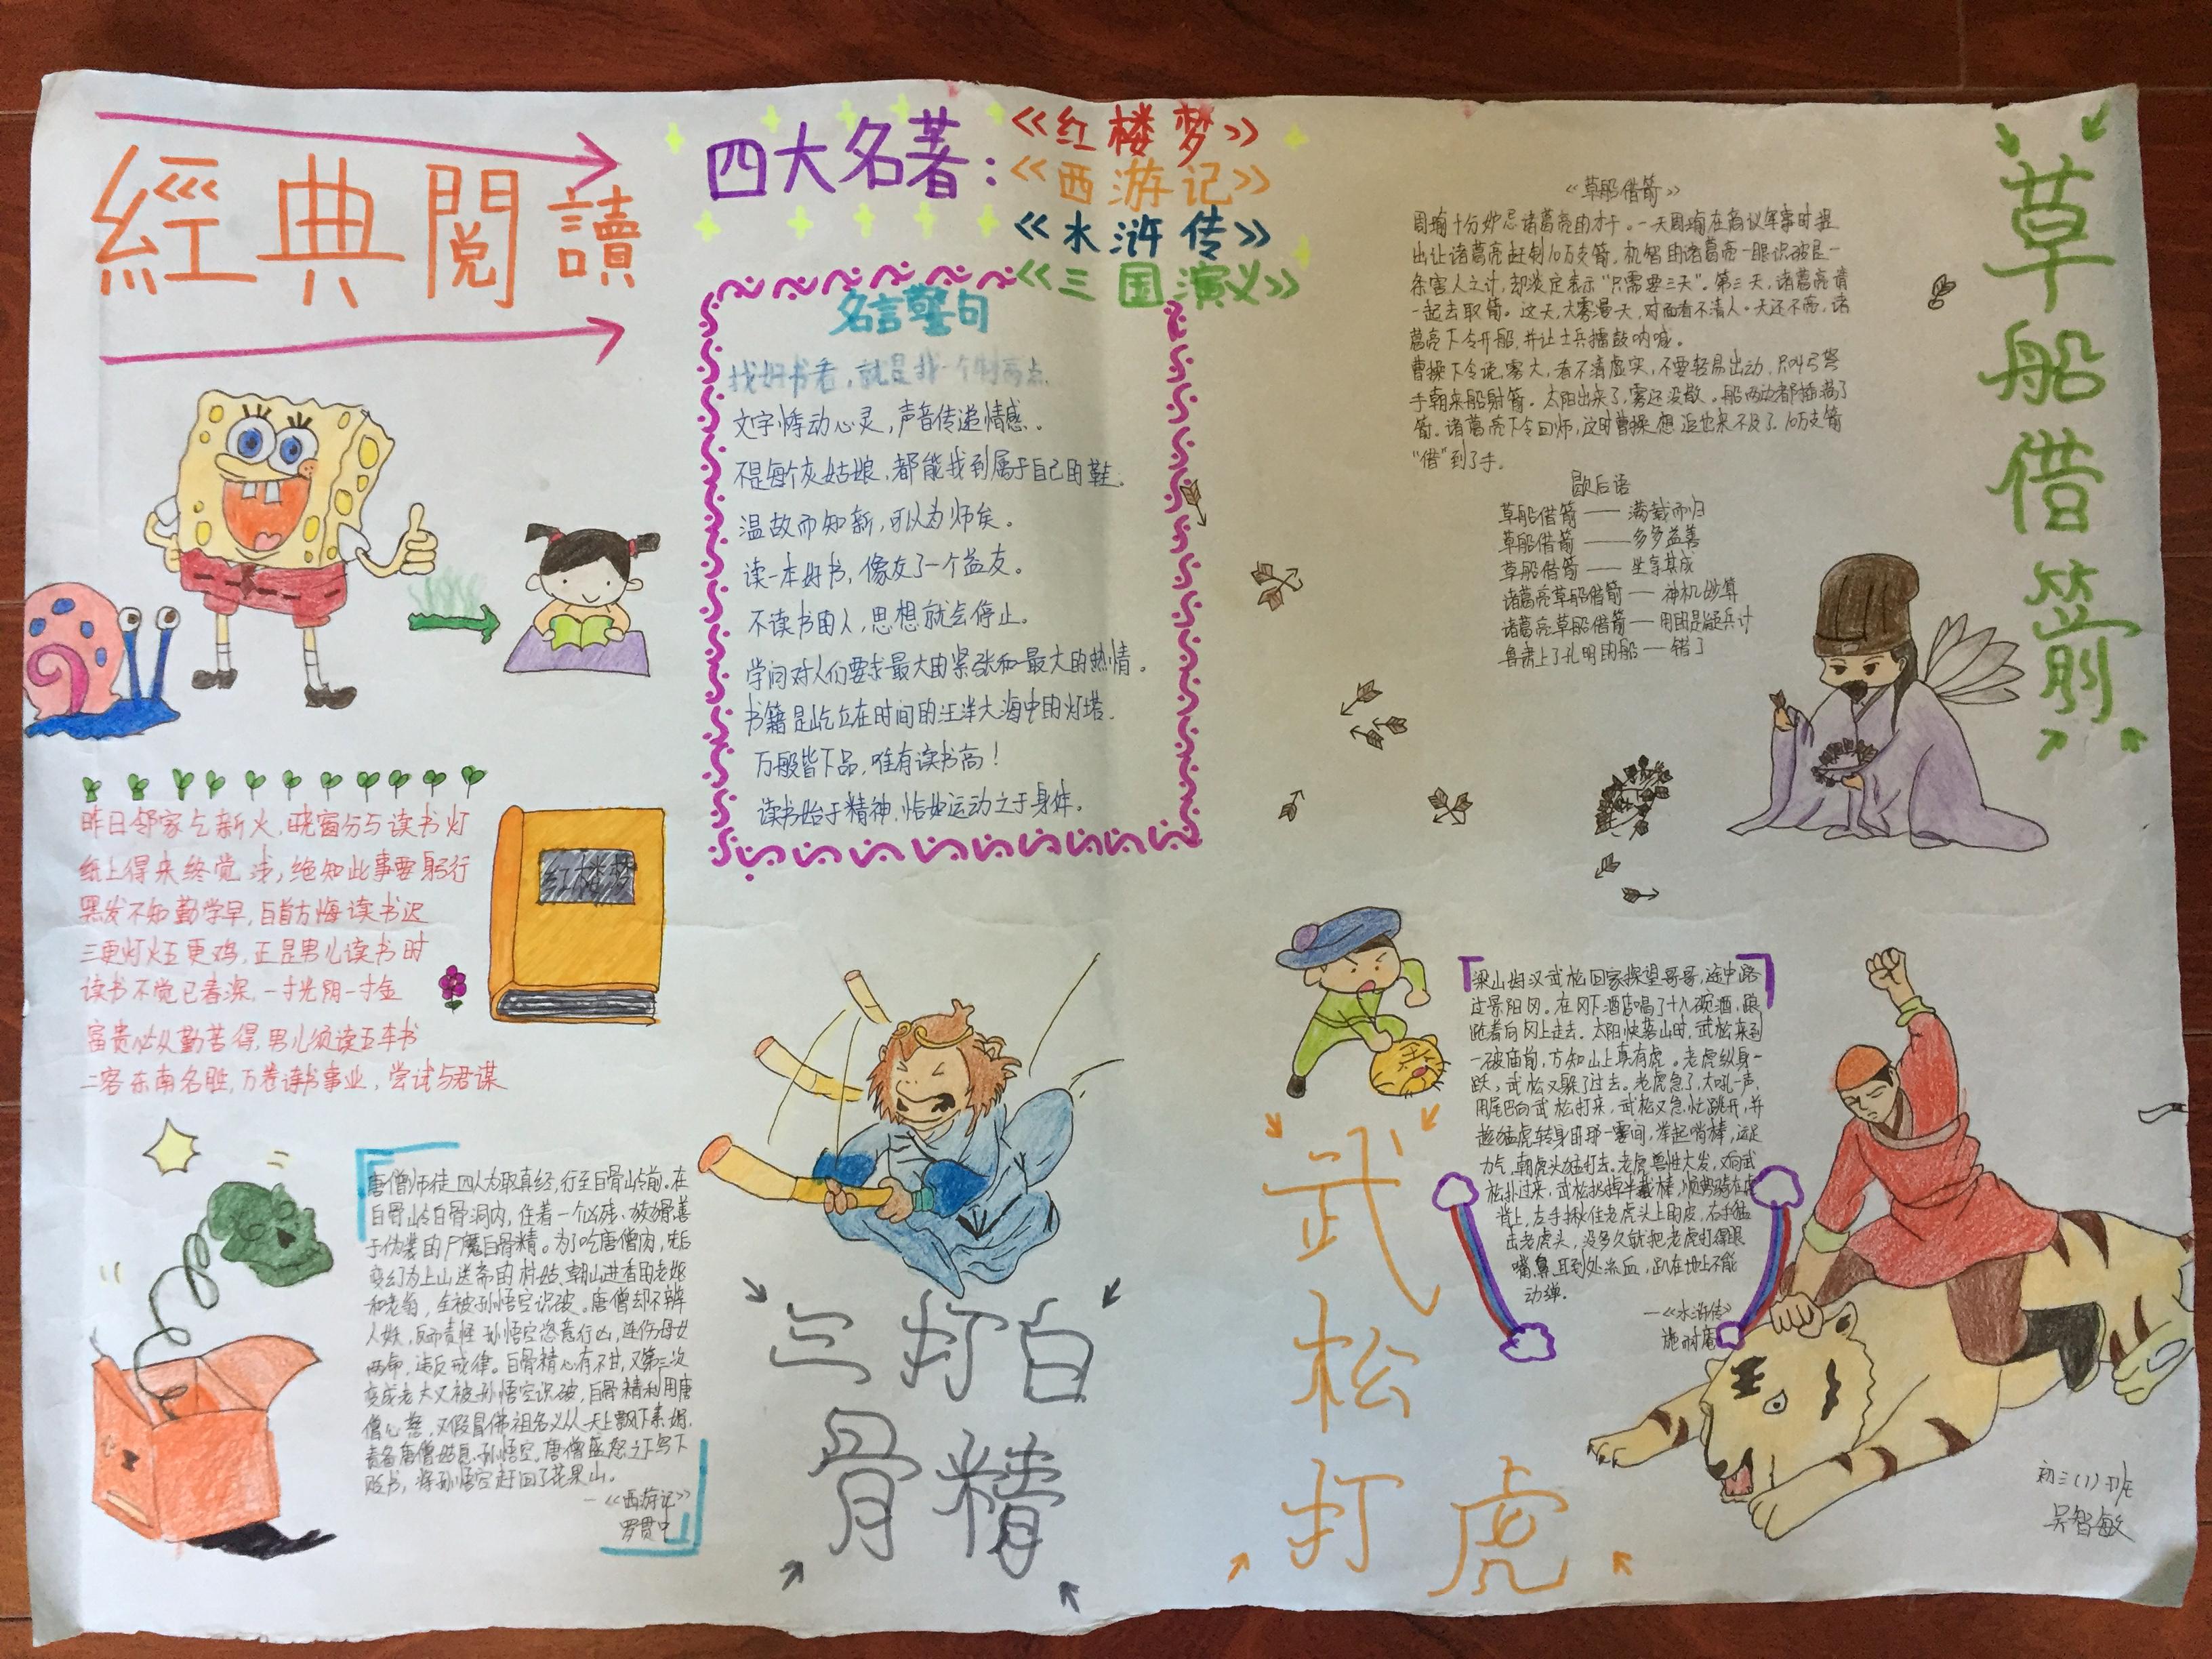 經典閱讀
四大名著：
《红楼梦》
《西游记》
《水浒传》
《三国演义》
名言警句
找好书看，就是我一个
文字悸动心灵，声音传递情感。
不是每个灰姑娘，都能找到属于自己的鞋。
温故而知新，可以为师矣。
读一本好书，像交了一个益友。
不读书的人，思想就会停止。
学问对人们要求最大的紧张和最大的热情。
书籍是屹立在时间的汪洋大海中的灯塔。
万般皆下品，唯有读书高！
读书始于精神，恰如运动之于身体。
昨日邻家乞新火，晓窗分与读书灯
纸上得来终觉浅，绝知此事要躬行
黑发不知勤学早，白首方悔读书迟
三更灯火五更鸡，正是男儿读书时
读书不觉已春深，一寸光阴一寸金
富贵必从勤苦得，男儿须读五车书
二客东南名胜，万卷诗书事业，尝试与君谋
红楼梦
唐僧师徒四人为取真经，行至白骨岭前。在
白骨岭白骨洞内，住着一个凶残、狡猾善
于伪装的尸魔白骨精。为了吃唐僧肉，先后
变幻为上山送斋的村姑、朝山进香的老妪
和老翁，全被孙悟空识破。唐僧却不辨
人妖，反而责怪孙悟空恣意行凶，连伤母女
两命，违反戒律。白骨精心有不甘，又第三次
变成老丈又被孙悟空识破，白骨精利用唐
僧心慈，又假冒佛祖名义从天上飘下素绢，
责备唐僧姑息孙悟空。唐僧盛怒之下写下
贬书，将孙悟空赶回了花果山。
—《西游记》
罗贯中
三打白
骨精
《草船借箭》
周瑜十分妒忌诸葛亮的才干。一天周瑜在商议军事时提
出让诸葛亮赶制10万支箭，机智的诸葛亮一眼识破是一
条害人之计，却淡定表示“只需要三天”。第三天，诸葛亮请
一起去取箭。这天，大雾漫天，对面看不清人。天还不亮，诸
葛亮下令开船，并让士兵擂鼓呐喊。
曹操下令说，雾大，看不清虚实，不要轻易出动，只叫弓弩
手朝来船射箭。太阳出来了，雾还没散。船两边都插满了
箭。诸葛亮下令回师，这时曹操想追也来不及了。10万支箭
“借”到了手。
歇后语
草船借箭——满载而归
草船借箭——多多益善
草船借箭——坐享其成
诸葛亮草船借箭——神机妙算
诸葛亮草船借箭—用的是疑兵计
鲁肃上了孔明的船—错了
草船借箭
梁山好汉武松回家探望哥哥，途中路
过景阳冈。在冈下酒店喝了十八碗酒，踉
跄着向冈上走去。太阳快落山时，武松来到
一破庙前，方知山上真有虎。老虎纵身一
跃，武松又躲了过去。老虎急了，大吼一声，
用尾巴向武松打来，武松又急忙跳开，并
趁猛虎转身的那一霎间，举起哨棒，运足
力气，朝虎头猛打去。老虎兽性大发，又向武
松扑过来，武松扔掉半截棒，顺势骑在虎
背上，左手揪住老虎头上的皮，右手猛
击老虎头，没多久就把老虎打得眼
嘴、鼻、耳到处流血，趴在地上不能
动弹。
—《水浒传》
施耐庵
武松打虎
初三(1)班
吴智敏